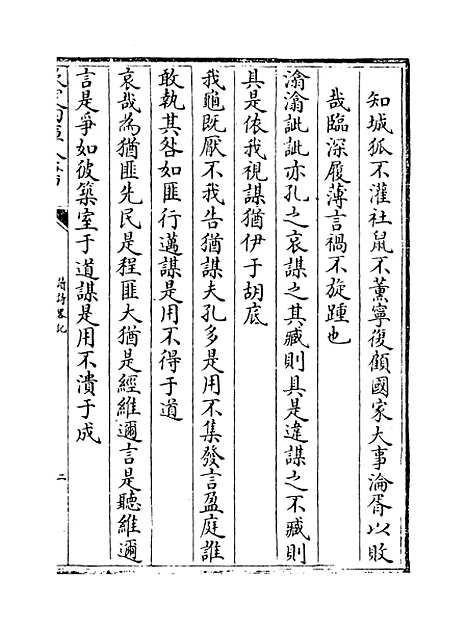 知城狐不灌社鼠不薰寧復顧國家大事淪胥以敗
哉臨深履薄言禍不旋踵也
潝潝訿訿亦孔之哀謀之其臧則具是違謀之不臧則
具是依我視謀猶伊于胡底
我龜既厭不我告猶謀夫孔多是用不集發言盈庭誰
敢執其咎如匪行邁謀是用不得于道
哀哉為猶匪先民是程匪大猶是經維邇言是聽維邇
言是爭如彼築室于道謀是用不潰于成
二